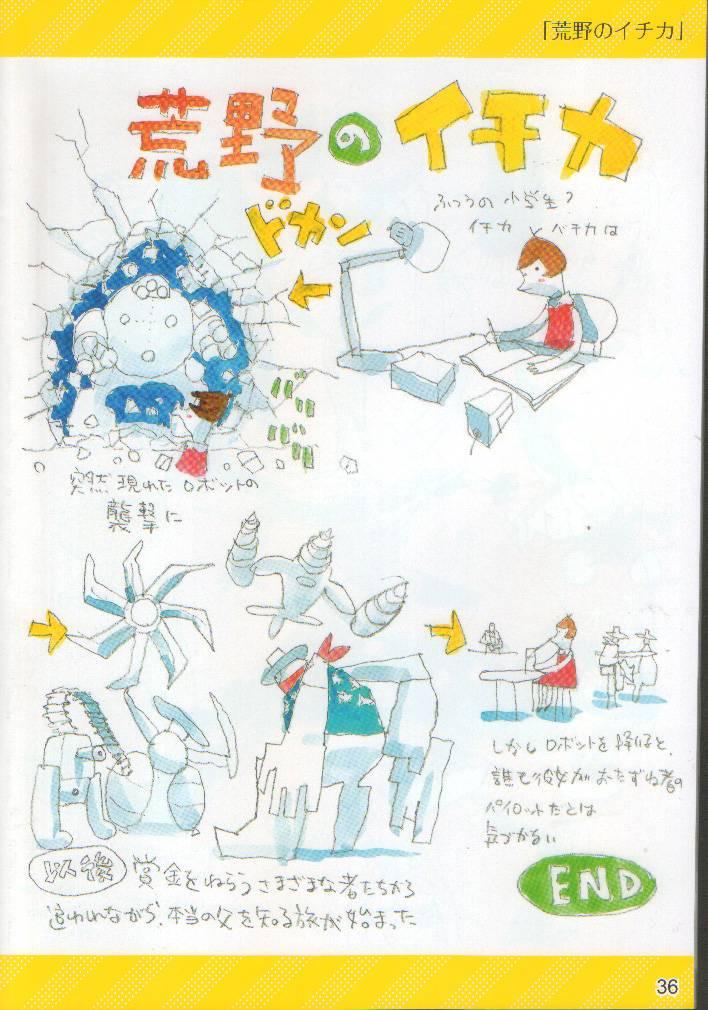 「荒野のイチカ」
荒野のイチカ
ふつうの小学生?
イチカ バチカは
ドカン
バリ
バリ
突然現れたロボットの
襲撃に
しかしロボットを降りると、
誰も彼女がおたずね者の
パイロットだとは
気づかない
以後 賞金をねらうさまざまな者たちから
追われながら、本当の父を知る旅が始まった
END
36